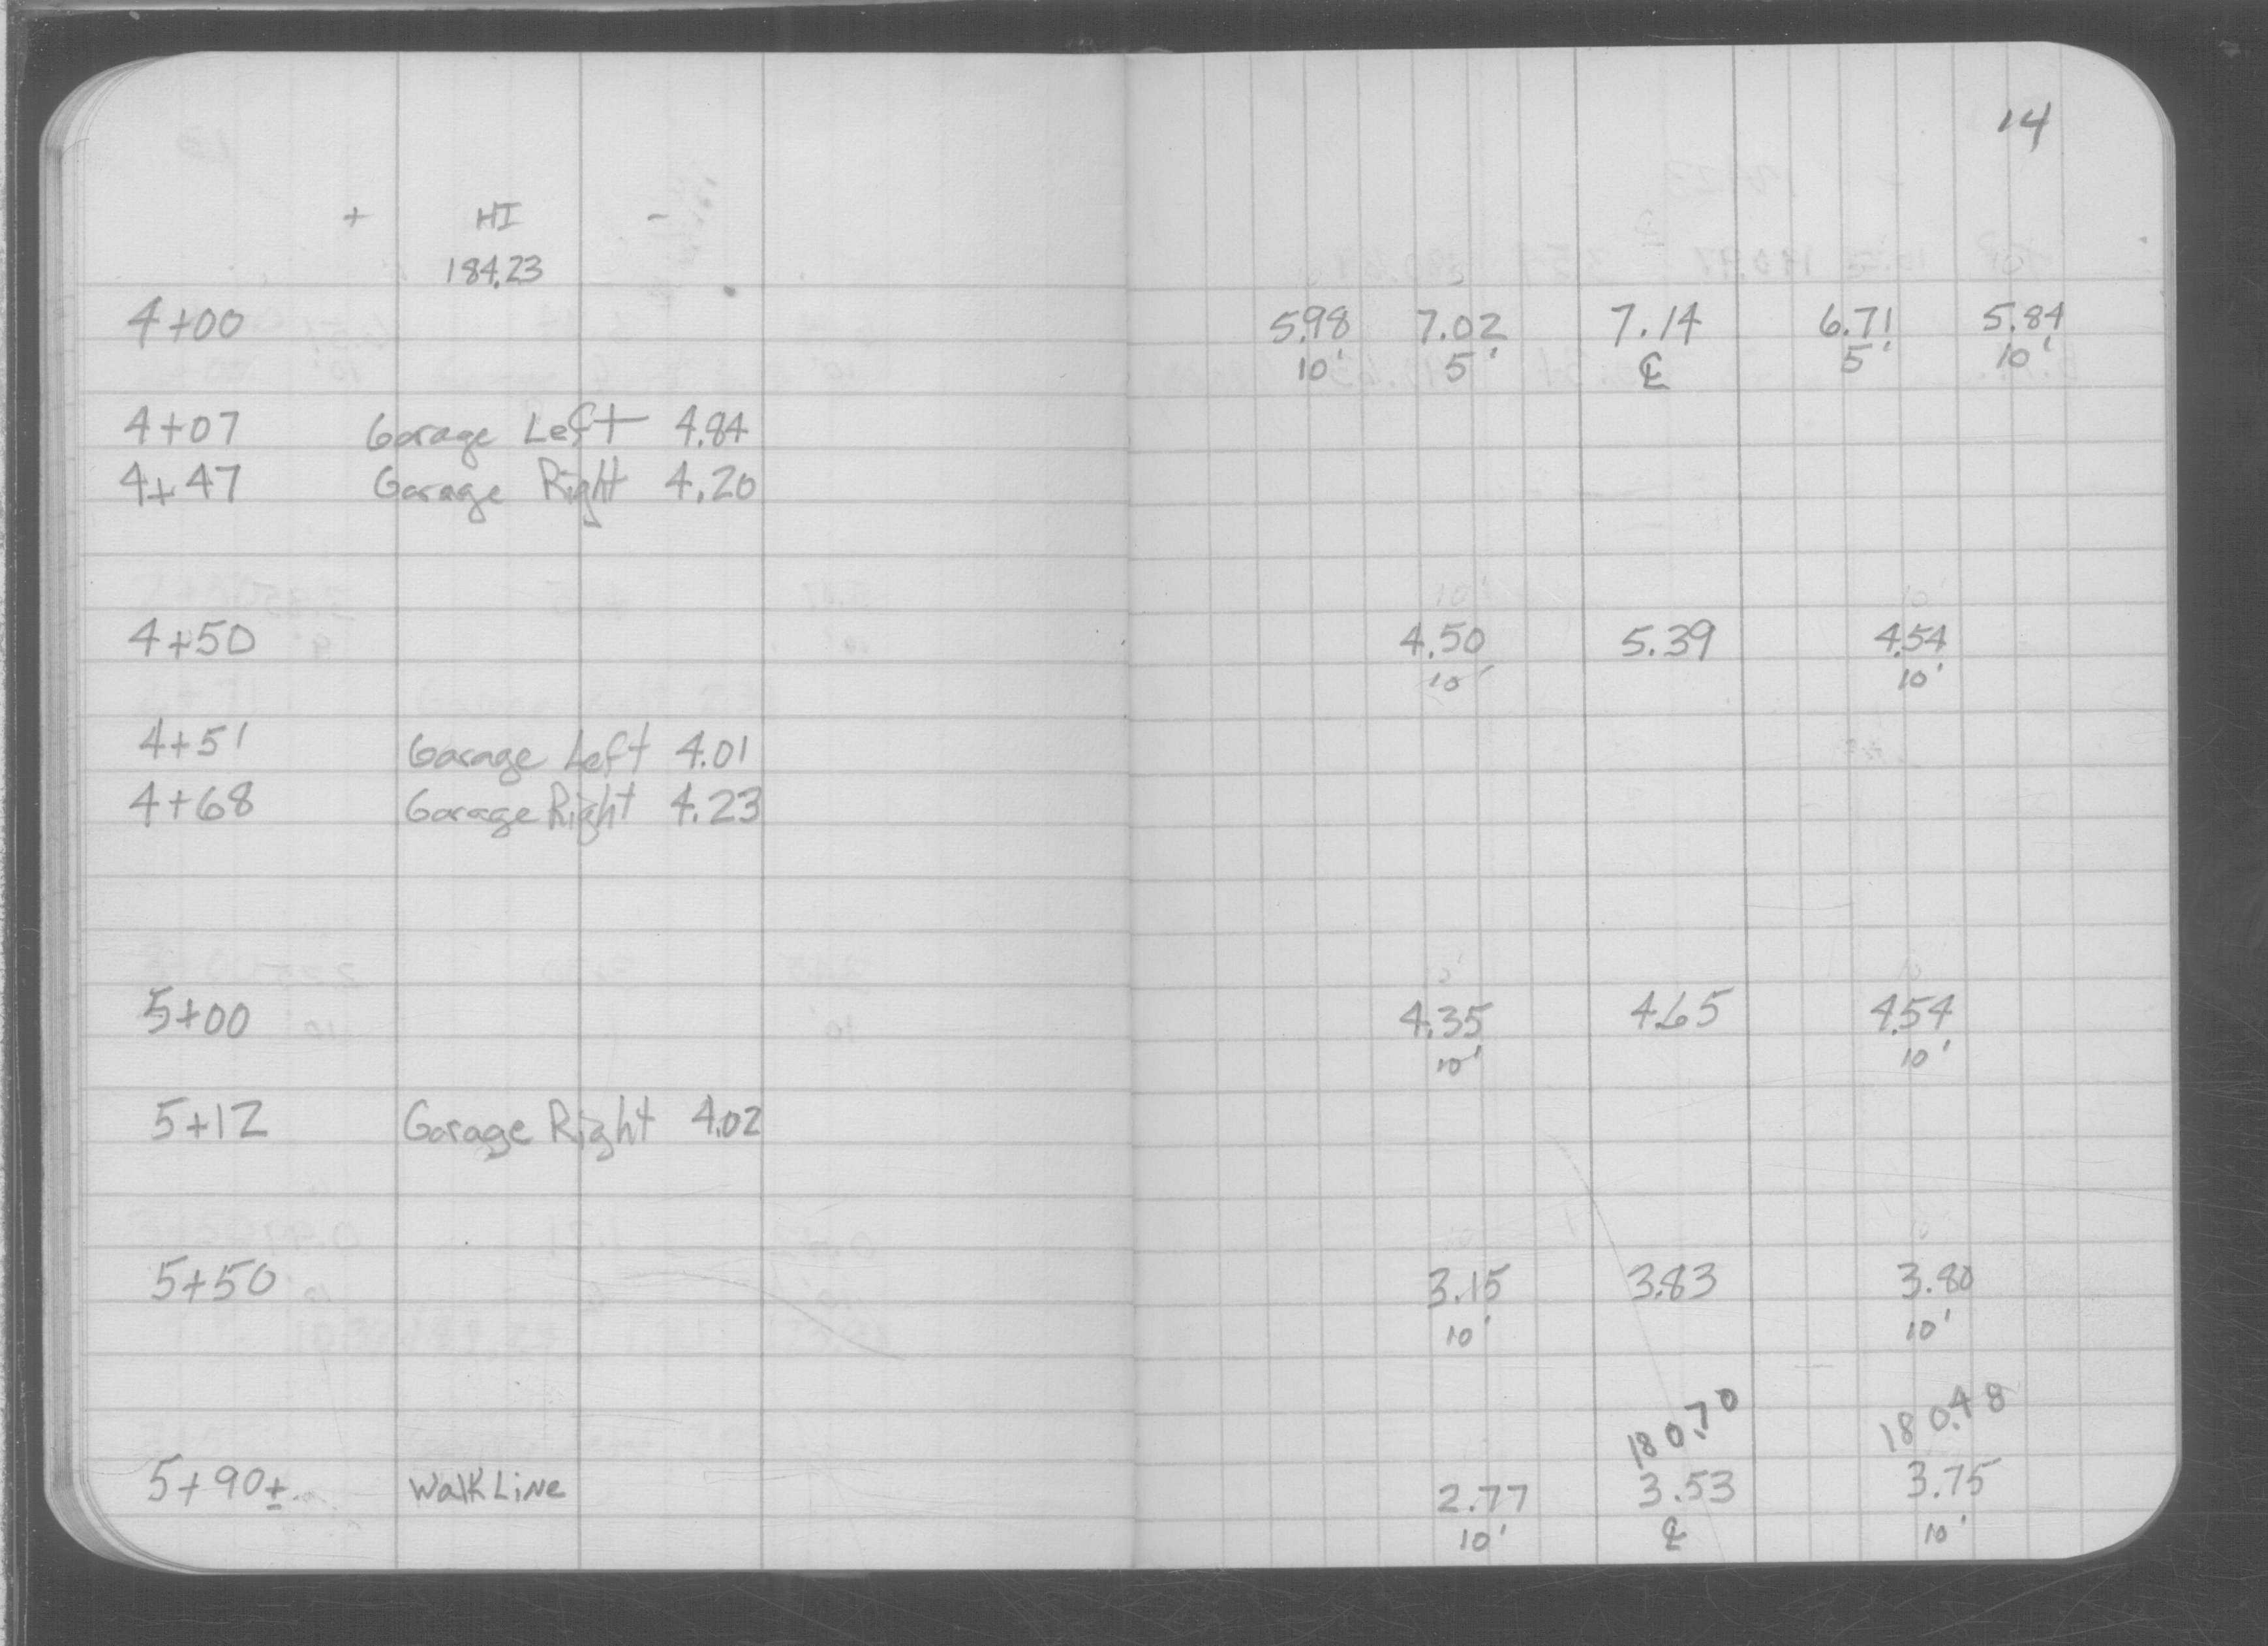 14
+ HI -
184.23
4+00 5.98 7.02 7.14 6.71 5.84
10' 5' ℄ 5' 10'
4+07 Garage Left 4.84
4+47 Garage Right 4.20
4+50 4.50 5.39 4.54
10' 10'
4+51 Garage Left 4.01
4+68 Garage Right 4.23
5+00 4.35 4.65 4.54
10' 10'
5+12 Garage Right 4.02
5+50 3.15 3.83 3.80
10' 10'
180.70 180.48
5+90± Walk Line 2.77 3.53 3.75
10' ℄ 10'